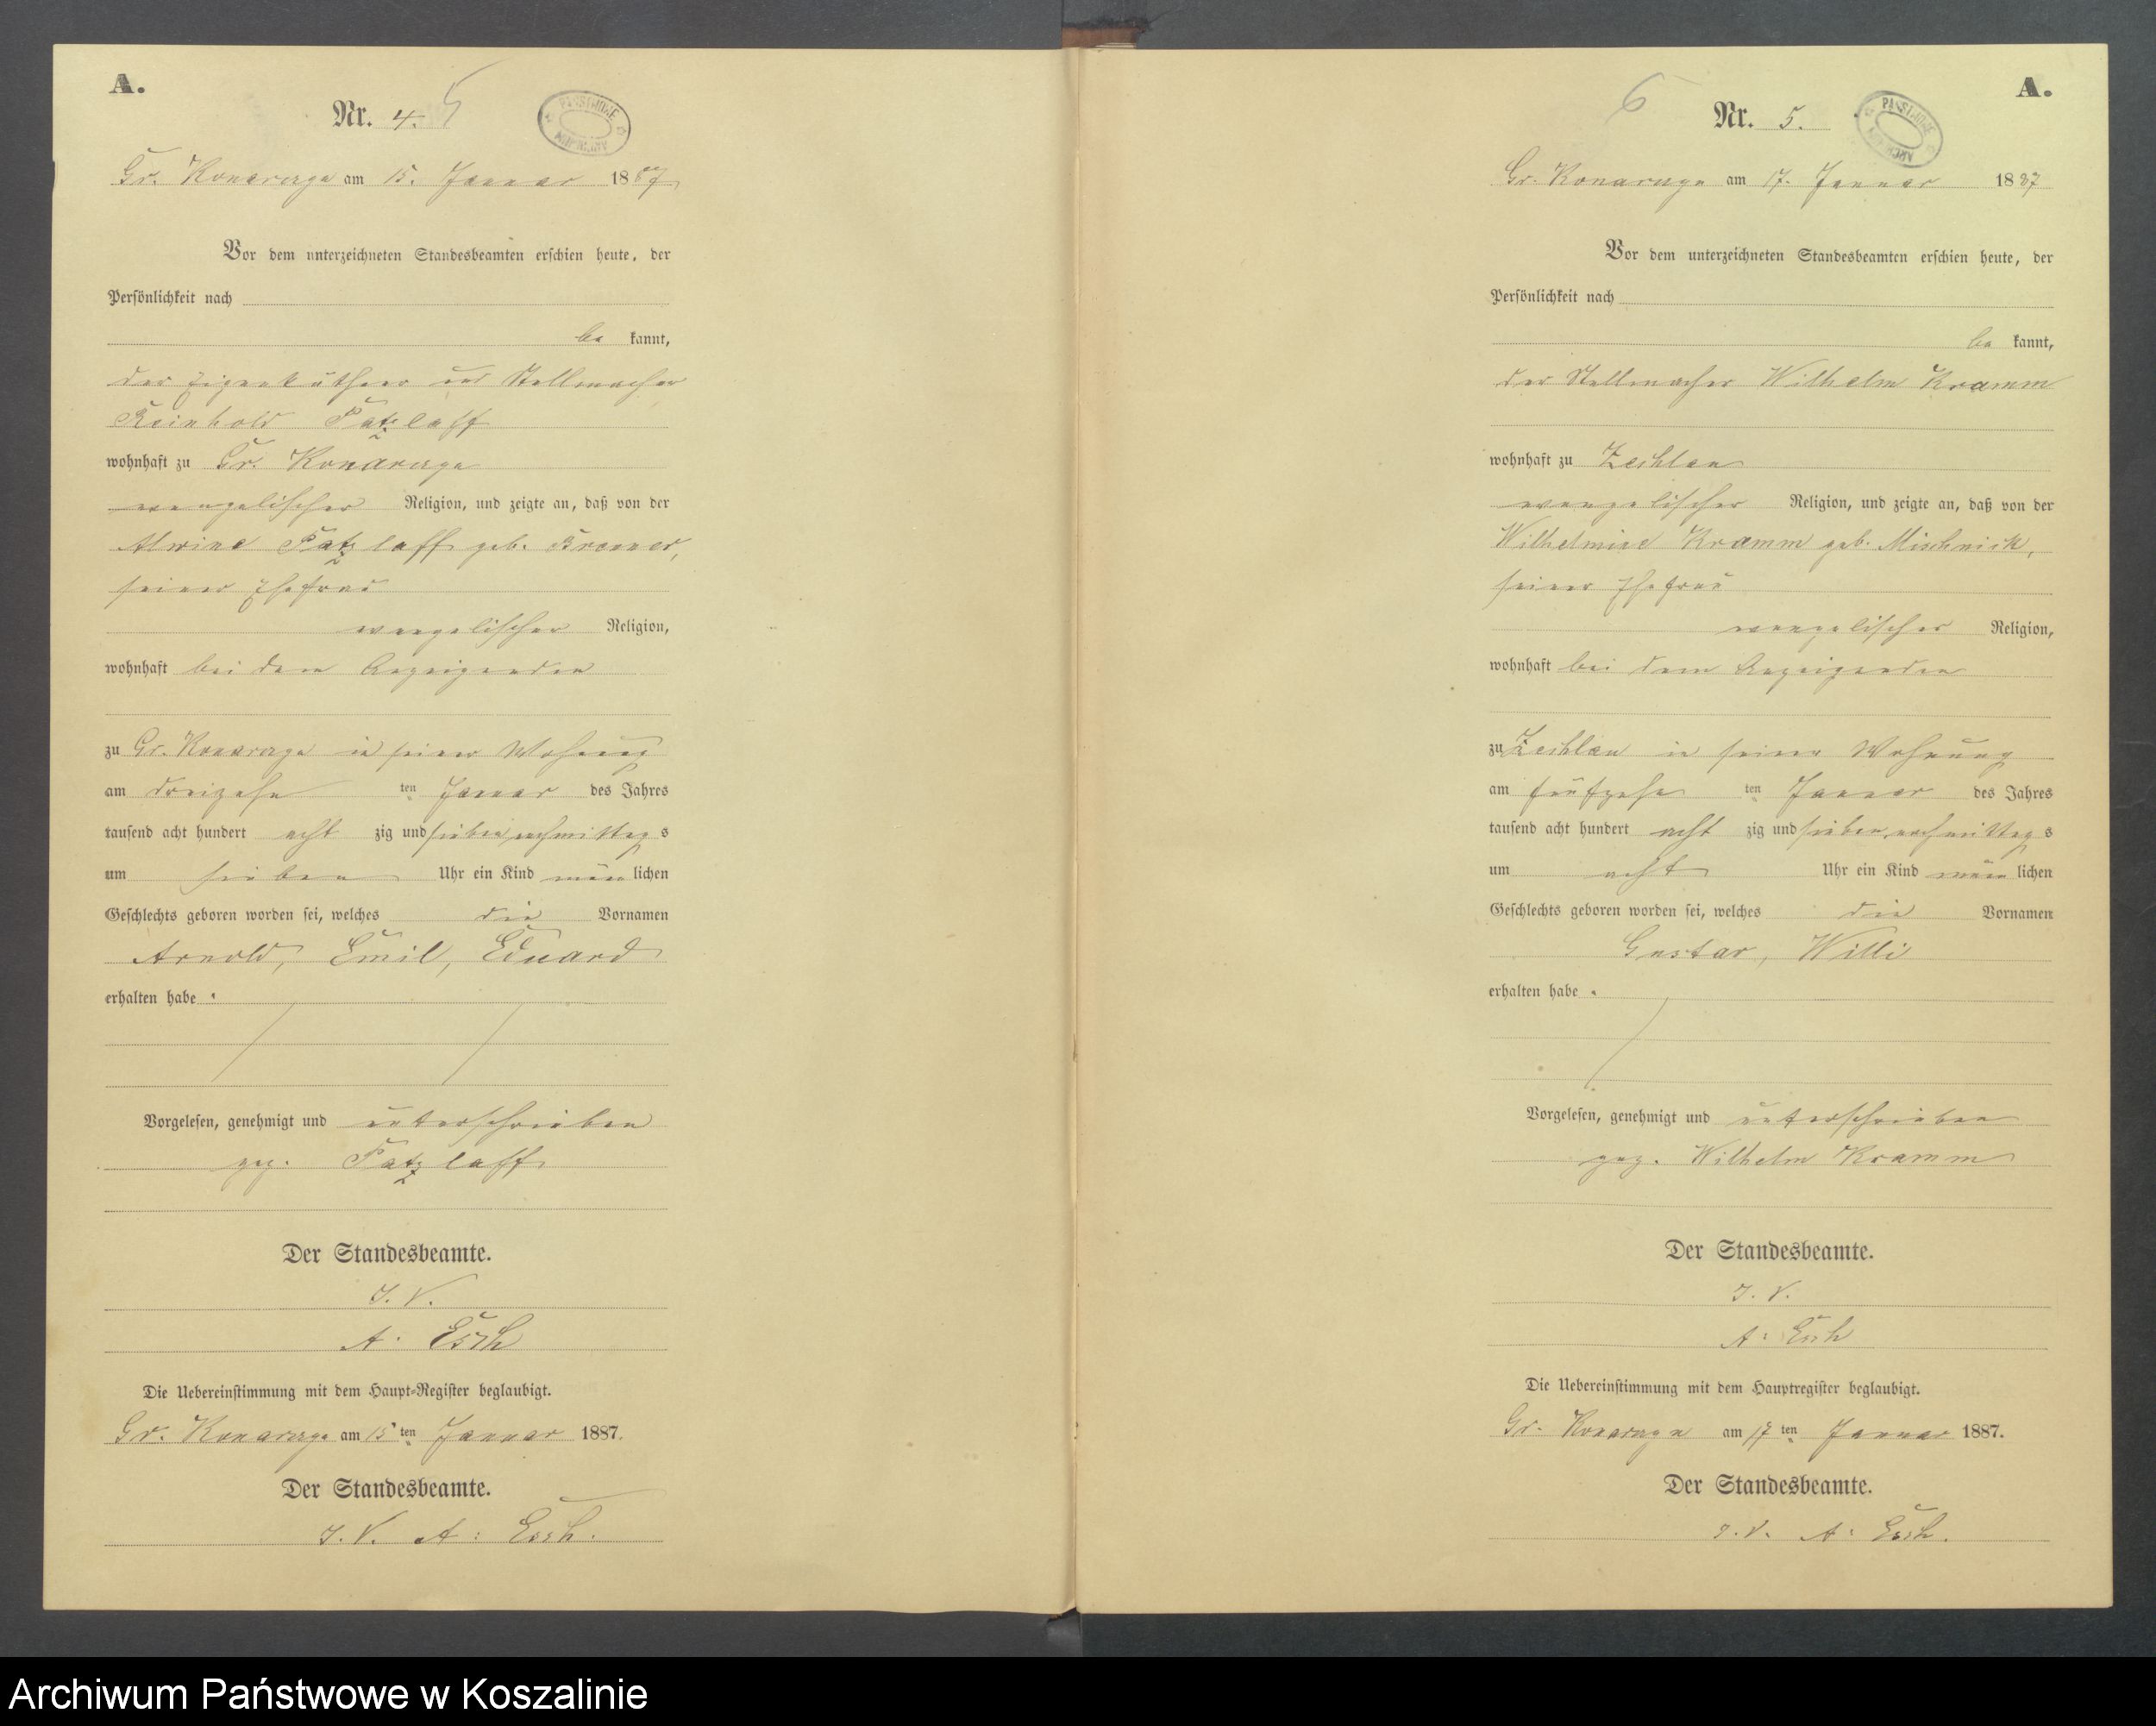 A.
Nr. 4. 5
PAŃSTWOWE ARCHIWUM
Gr. Konarczyn am 15. Januar 1887
Vor dem unterzeichneten Standesbeamten erschien heute, der
Persönlichkeit nach
be kannt,
der Eigenkäthner und Stellmacher
Reinhold Patzlaff
wohnhaft zu Gr. Konarczyn
evangelischer Religion, und zeigte an, daß von der
Alwine Patzlaff geb.
seiner Ehefrau
evangelischer Religion,
wohnhaft bei dem Anzeigenden
zu Gr. Konarczyn in seiner Wohnung
am dreizehn ten Januar des Jahres
tausend acht hundert acht zig und sieben nachmittag s
um sieben Uhr ein Kind männ lichen
Geschlechts geboren worden sei, welches die Vornamen
Arnold, Emil, Eduard
erhalten habe.
Vorgelesen, genehmigt und unterschrieben
gez. Patzlaff
Der Standesbeamte.
J. V.
A. Esch
Die Uebereinstimmung mit dem Haupt-Register beglaubigt.
Gr. Konarczyn am 15 ten Januar 1887.
Der Standesbeamte.
J. V. A: Esch.
A.
6
Nr. 5.
PAŃSTWOWE ARCHIWUM
Gr. Konarczyn am 17. Januar 1887
Vor dem unterzeichneten Standesbeamten erschien heute, der
Persönlichkeit nach
be kannt,
der Stellmacher Wilhelm Kramm
wohnhaft zu Zechlau
evangelischer Religion, und zeigte an, daß von der
Wilhelmine Kramm geb. Mischnick,
seiner Ehefrau
evangelischer Religion,
wohnhaft bei dem Anzeigenden
zu Zechlau in seiner Wohnung
am fünfzehn ten Januar des Jahres
tausend acht hundert acht zig und sieben nachmittag s
um acht Uhr ein Kind männ lichen
Geschlechts geboren worden sei, welches die Vornamen
Gustav, Willi
erhalten habe.
Vorgelesen, genehmigt und unterschrieben
gez. Wilhelm Kramm
Der Standesbeamte.
J. V.
A: Esch
Die Uebereinstimmung mit dem Hauptregister beglaubigt.
Gr. Konarczyn am 17 ten Januar 1887.
Der Standesbeamte.
J. V. A: Esch.
Archiwum Państwowe w Koszalinie